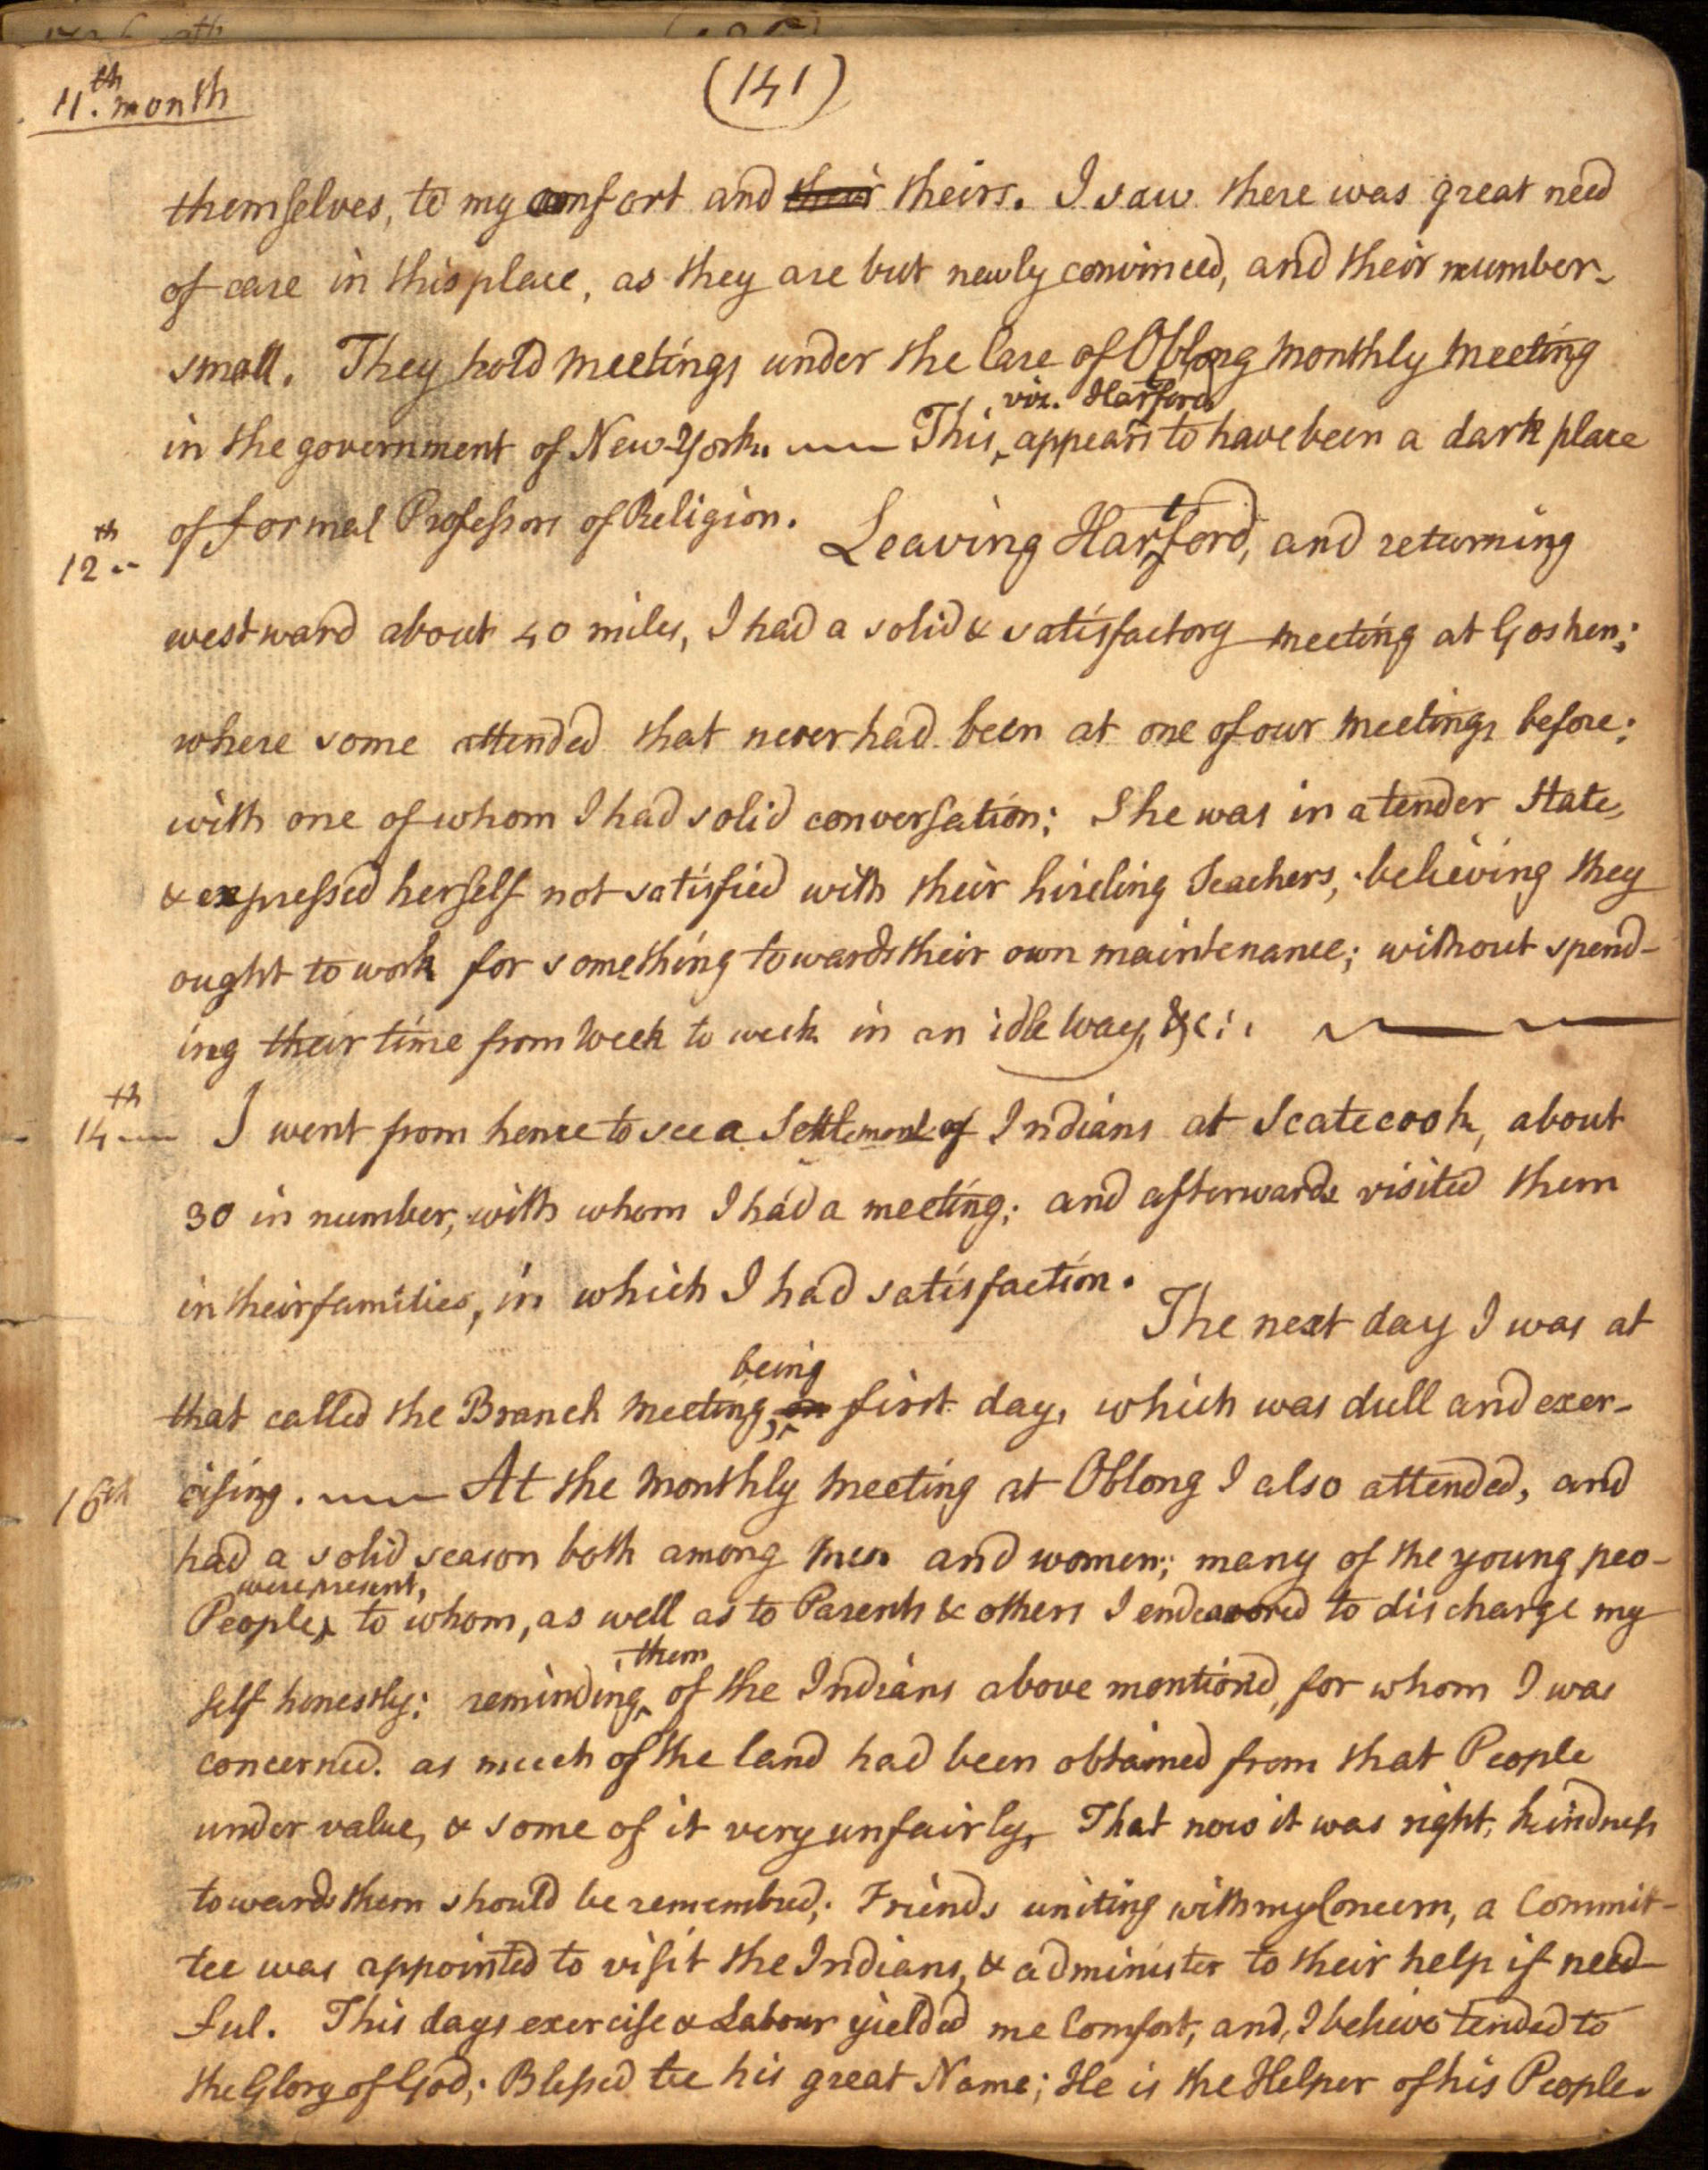 11.th month
(141)
themselves, to my comfort and their theirs. I saw there was great need
of care in this place, as they are but newly convinced, and their number
small. They hold meetings under the Care of Oblong monthly meeting
viz. Hartford
in the government of New-York. —— This ‸ appears to have been a dark place
of formal Professors of Religion. Leaving Hartford, and returning
12th
westward about 40 miles, I had a solid & satisfactory meeting at Goshen;
where some attended that never had been at one of our meetings before;
with one of whom I had solid conversation; She was in a tender State,
& expressed herself not satisfied with their hireling Teachers, believing they
ought to work for something towards their own maintenance; without spend-
ing their time from Week to week in an idle way, &c:.
14th —— I went from hence to see a Settlement of Indians at Scatecook, about
30 in number, with whom I had a meeting; and afterwards visited them
in their families, in which I had satisfaction. The next day I was at
being
that called the Branch meeting, ‸ on first day, which was dull and exer-
16th cising. —— At the monthly meeting at Oblong I also attended, and
had a solid season both among men and women; many of the young peo-
were present,
People ‸ to whom, as well as to Parents & others I endeavored to discharge my
them
self honestly; reminding ‸ of the Indians above mention'd, for whom I was
concerned. as much of the land had been obtained from that People
under value, & some of it very unfairly, That now it was right, kindness
towards them should be remembred; Friends uniting with my Concern, a Commit-
tee was appointed to visit the Indians, & administer to their help if need-
ful. This days exercise & Labour yielded me Comfort, and, I believe tended to
the Glory of God; Blessed be his great Name; He is the Helper of his People.